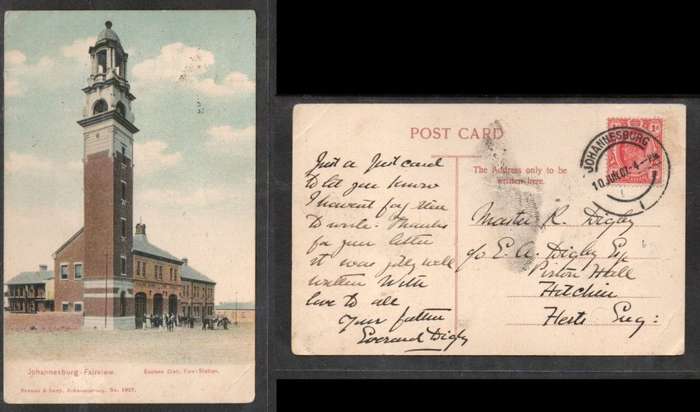 Johannesburg-Fairview. Eastern Dist. Fire-Station.
Johannesburg. No. 1907.
POST CARD
The Address only to be
written here.
JOHANNESBURG
10 JUN. 07. 4-PM
1
Just a post card
to let you know
I havent forgotten
to write. Thanks
for your letter
it was jolly well
written With
love to all
Your father
Everard Digby
Master R. Digby
c/o E. A. Digby Esq
Pirton Hall
Hitchin
Herts Eng: